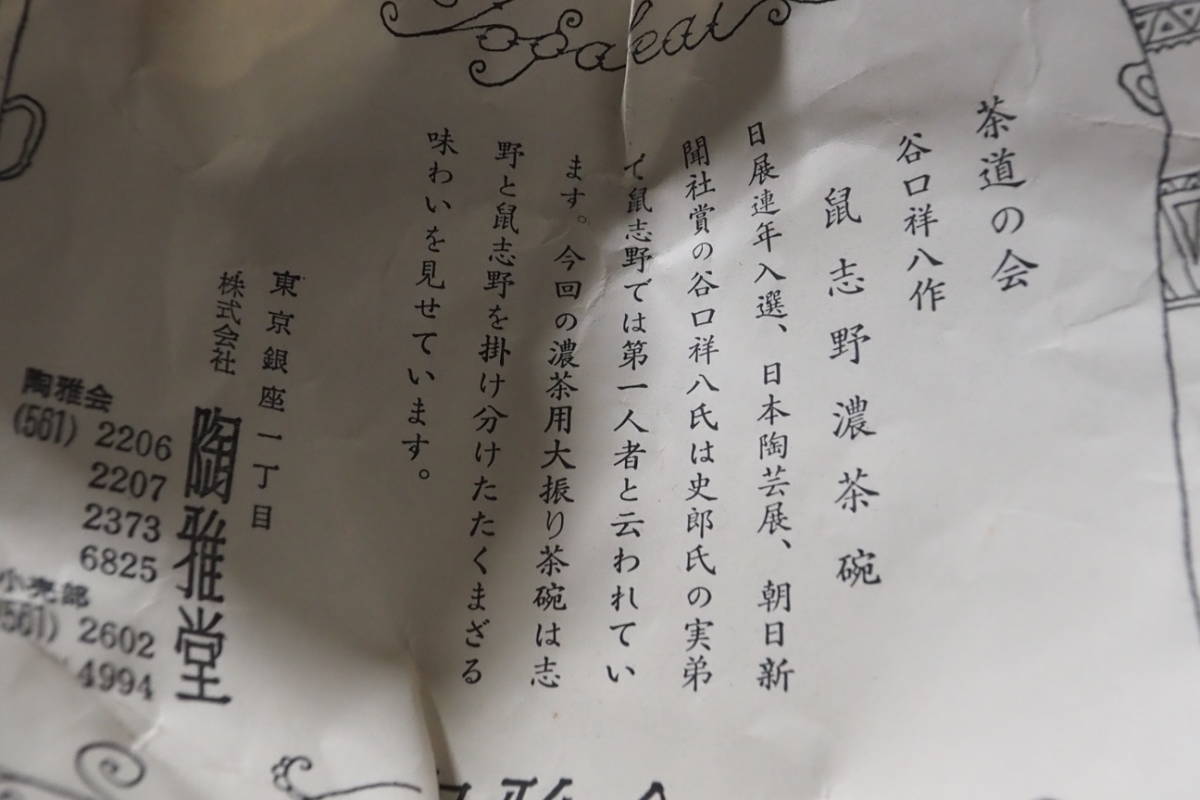 茶道の会
谷口祥八作
鼠志野濃茶碗
日展連年入選、日本陶芸展、朝日新
聞社賞の谷口祥八氏は史郎氏の実弟
で鼠志野では第一人者と云われてい
ます。今回の濃茶用大振り茶碗は志
野と鼠志野を掛け分けたたくまざる
味わいを見せています。
東京銀座一丁目
株式会社 陶雅堂
陶雅会
(561) 2206
2207
2373
6825
小売部
(561) 2602
4994